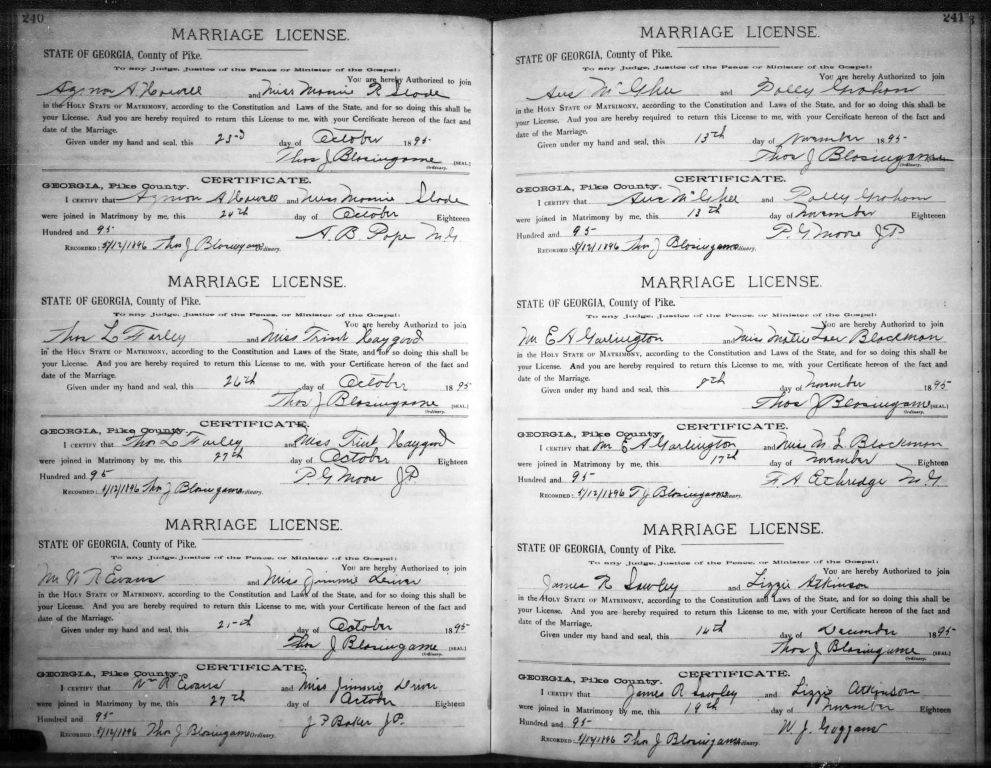 240
MARRIAGE LICENSE.
STATE OF GEORGIA, County of Pike.
To any Judge, Justice of the Peace, or Minister of the Gospel:
You are hereby Authorized to join
A Howell and Miss Monnie R Slade
in the HOLY STATE OF MATRIMONY, according to the Constitution and Laws of the State, and for so doing this shall be
your License. And you are hereby required to return this License to me, with your Certificate hereon of the fact and
date of the Marriage.
Given under my hand and seal, this 23rd day of October 1895
Thos J Blasingame [SEAL]
Ordinary.
CERTIFICATE.
GEORGIA, Pike County.
I CERTIFY that A Howell and Miss Monnie Slade
were joined in Matrimony by me, this 24th day of October Eighteen
Hundred and 95 A. B. Pope M.G
RECORDED: 5/12/1896 Thos J Blasingame Ordinary.
MARRIAGE LICENSE.
STATE OF GEORGIA, County of Pike.
To any Judge, Justice of the Peace, or Minister of the Gospel:
You are hereby Authorized to join
Thos L Farley and Miss Trint Haygood
in the HOLY STATE OF MATRIMONY, according to the Constitution and Laws of the State, and for so doing this shall be
your License. And you are hereby required to return this License to me, with your Certificate hereon of the fact and
date of the Marriage.
Given under my hand and seal, this 26th day of October 1895
Thos J Blasingame [SEAL]
Ordinary.
CERTIFICATE.
GEORGIA, Pike County.
I CERTIFY that Thos L Farley and Miss Trint Haygood
were joined in Matrimony by me, this 27th day of October Eighteen
Hundred and 95 P G Moore J P
RECORDED: 5/12/1896 Thos J Blasingame Ordinary.
MARRIAGE LICENSE.
STATE OF GEORGIA, County of Pike.
To any Judge, Justice of the Peace, or Minister of the Gospel:
You are hereby Authorized to join
Mr W R Evans and Miss Jimmie
in the HOLY STATE OF MATRIMONY, according to the Constitution and Laws of the State, and for so doing this shall be
your License. And you are hereby required to return this License to me, with your Certificate hereon of the fact and
date of the Marriage.
Given under my hand and seal, this day of October 1895
Thos J Blasingame [SEAL]
Ordinary.
CERTIFICATE.
GEORGIA, Pike County.
I CERTIFY that Wm R Evans and Miss Jimmie
were joined in Matrimony by me, this 27th day of October Eighteen
Hundred and 95 J F Baker J.P.
RECORDED: 5/12/1896 Thos J Blasingame Ordinary.
241
MARRIAGE LICENSE.
STATE OF GEORGIA, County of Pike.
To any Judge, Justice of the Peace, or Minister of the Gospel:
You are hereby Authorized to join
Aus McGhee and Polly Graham
in the HOLY STATE OF MATRIMONY, according to the Constitution and Laws of the State, and for so doing this shall be
your License. And you are hereby required to return this License to me, with your Certificate hereon of the fact and
date of the Marriage.
Given under my hand and seal, this 13th day of November 1895
Thos J Blasingame
Ordinary.
CERTIFICATE.
GEORGIA, Pike County.
I CERTIFY that Aus McGhee and Polly Graham
were joined in Matrimony by me, this 13th day of November Eighteen
Hundred and 95 P. G Moore J P
RECORDED: 5/12/1896 Thos J Blasingame Ordinary.
MARRIAGE LICENSE.
STATE OF GEORGIA, County of Pike.
To any Judge, Justice of the Peace, or Minister of the Gospel:
You are hereby Authorized to join
Mr E A Garlington and Miss Matie Blackmon
in the HOLY STATE OF MATRIMONY, according to the Constitution and Laws of the State, and for so doing this shall be
your License. And you are hereby required to return this License to me, with your Certificate hereon of the fact and
date of the Marriage.
Given under my hand and seal, this day of November 1895
Thos J Blasingame [SEAL]
Ordinary.
CERTIFICATE.
GEORGIA, Pike County.
I CERTIFY that Mr E A Garlington and Miss M L Blackmon
were joined in Matrimony by me, this 17th day of November Eighteen
Hundred and 95 F. A Ethredge M.G
RECORDED: 5/12/1896 T J Blasingame Ordinary.
MARRIAGE LICENSE.
STATE OF GEORGIA, County of Pike.
To any Judge, Justice of the Peace, or Minister of the Gospel:
You are hereby Authorized to join
James R Sawley and Lizzie Atkinson
in the HOLY STATE OF MATRIMONY, according to the Constitution and Laws of the State, and for so doing this shall be
your License. And you are hereby required to return this License to me, with your Certificate hereon of the fact and
date of the Marriage.
Given under my hand and seal, this 16th day of December 1895
Thos J Blasingame [SEAL]
Ordinary.
CERTIFICATE.
GEORGIA, Pike County.
I CERTIFY that James R Sawley and Lizzie Atkinson
were joined in Matrimony by me, this 19th day of November Eighteen
Hundred and 95 W. J. Goggans
RECORDED: Thos J Blasingame Ordinary.